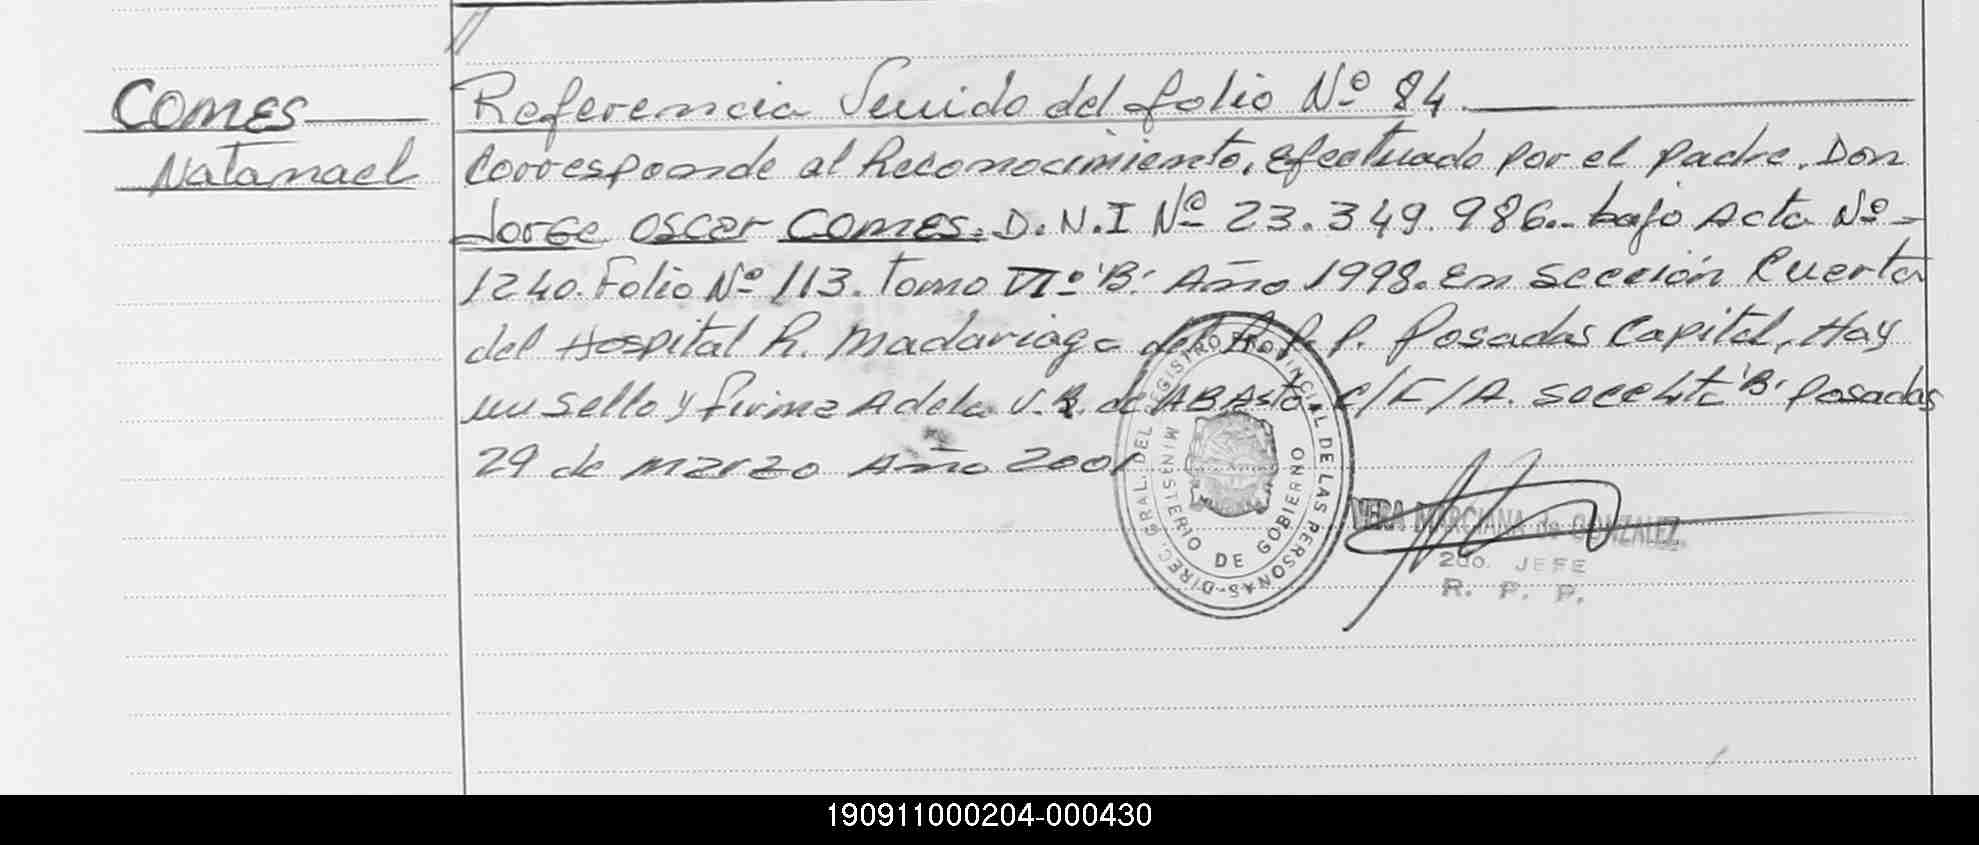 COMES
Natanael
Referencia Venido del folio Nº 84.
Corresponde al Reconocimiento, efectuado por el padre. Don
Jorge Oscar COMES. D.N.I Nº 23.349.986.. bajo Acta Nº-
1240. Folio Nº 113. Tomo VIº "B". Año 1998. en Sección Cuerta
del Hospital R. Madariaga del R.P.P. Posadas Capital, Hay
un Sello y firma Adela V. de ABAsto c/F/A. "B" Posadas
29 de Marzo Año 2001
DIREC. GRAL. DEL REGISTRO PROVINCIAL DE LAS PERSONAS
MINISTERIO DE GOBIERNO
VERA MARCIANA de GONZALEZ
2do. JEFE
R. P. P.
190911000204-000430